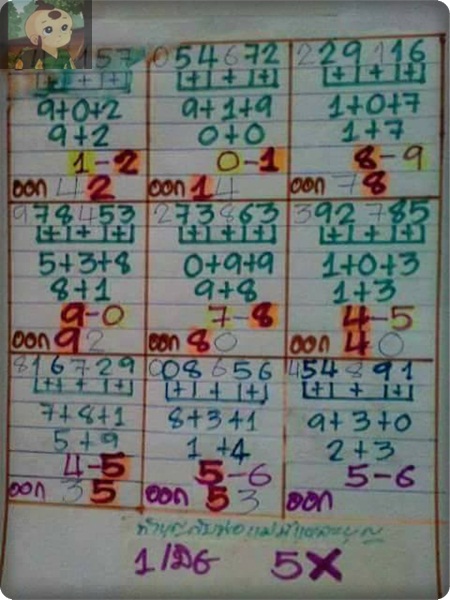 157 054672 229116
9+0+2 9+1+9 1+0+7
9+2 0+0 1+7
1-2 0-1 8-9
ออก 42 ออก 14 ออก 78
978453 273863 392785
5+3+8 0+9+9 1+0+3
8+1 9+8 1+3
9-0 7-8 4-5
ออก 92 ออก 80 ออก 40
816729 008656 454891
7+8+1 8+3+1 9+3+0
5+9 1+4 2+3
4-5 5-6 5-6
ออก 35 ออก 53 ออก
5X